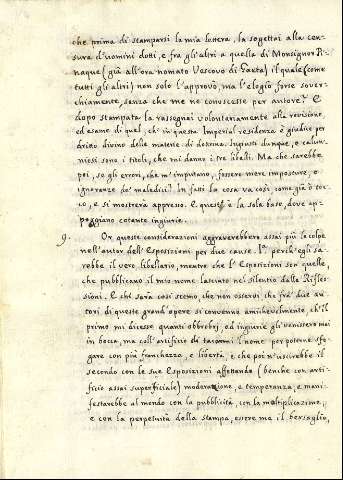 che prima di stamparsi la mia lettera, la sogettai alla cen-
sura d'uomini dotti, e fra gl'altri a quella di Monsignor Ri-
naque (già all'ora nomato Vescovo di Gaeta) il quale (come
tutti gli altri) non solo l'approvò, ma l'elogiò forse sover-
chiamente, senza che me ne conoscesse per autore? E
dopo stampata la rassegnai volontariamente alla revisione,
ed esame di quel, ch'in questa Imperial residenza è giudice per
dritto divino delle materie di dottrina. Ingiusti dunque, e calun-
niosi sono i titoli, che mi danno i tre libelli. Ma che sarebbe
poi, se gli errori, che m'imputano, fossero mere imposture, e
ignoranze de' maledici? In fatti la cosa va così come già ò toc-
co, e si mostrerà appresso. E questa è la sola base, dove ap-
poggiano cotante ingiurie.
9. Or queste considerazioni aggraverebbero assai più la colpe
nell'autor dell'Esposizioni per due cause. I.a perch'egli sa-
rebbe il vero libellario, mentre che l'Esposizioni son quelle,
che pubblicano il mio nome lasciato nel silentio dalla Rifles-
sioni. E chi sarà così scemo che non osservi che fra' due au-
tori di queste grand'opere si convenne amichevolmente, ch'il
primo mi dicesse quanti obbrobrj, ed ingiurie gli venissero mai
in bocca, ma coll'artificio di tacermi l'nome per poterne sfo-
gare con più franchezza, e libertà, e che poi n'uscirebbe il
secondo con le sue Esposizioni affettando (benche con arti-
ficio assai superficiale) moderazione e temperanza, e mani-
festarebbe al mondo con la pubblicità, con la multiplicazione,
e con la perpetuità della stampa, essere ma il bersaglio,